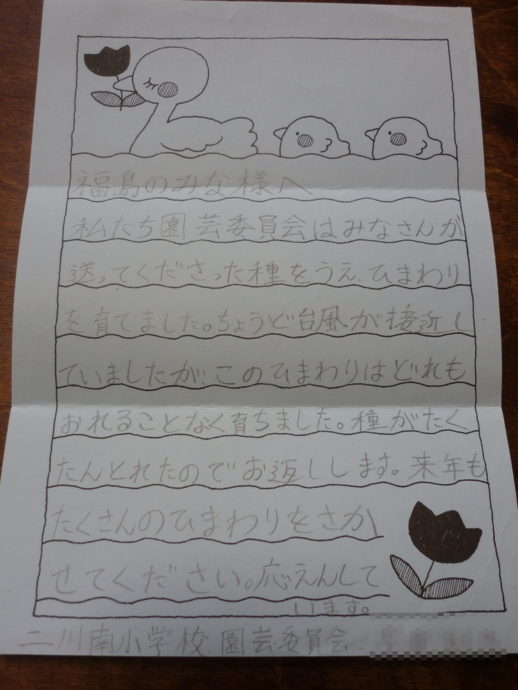 福島のみな様へ
私たち園芸委員会はみなさんが
送ってくださった種をうえ、ひまわり
を育てました。ちょうど台風が接近し
ていましたが、このひまわりはどれも
おれることなく育ちました。種がたく
たんとれたのでお返しします。来年も
たくさんのひまわりをさか
せてください。応えんして
います。
二川南小学校 園芸委員会